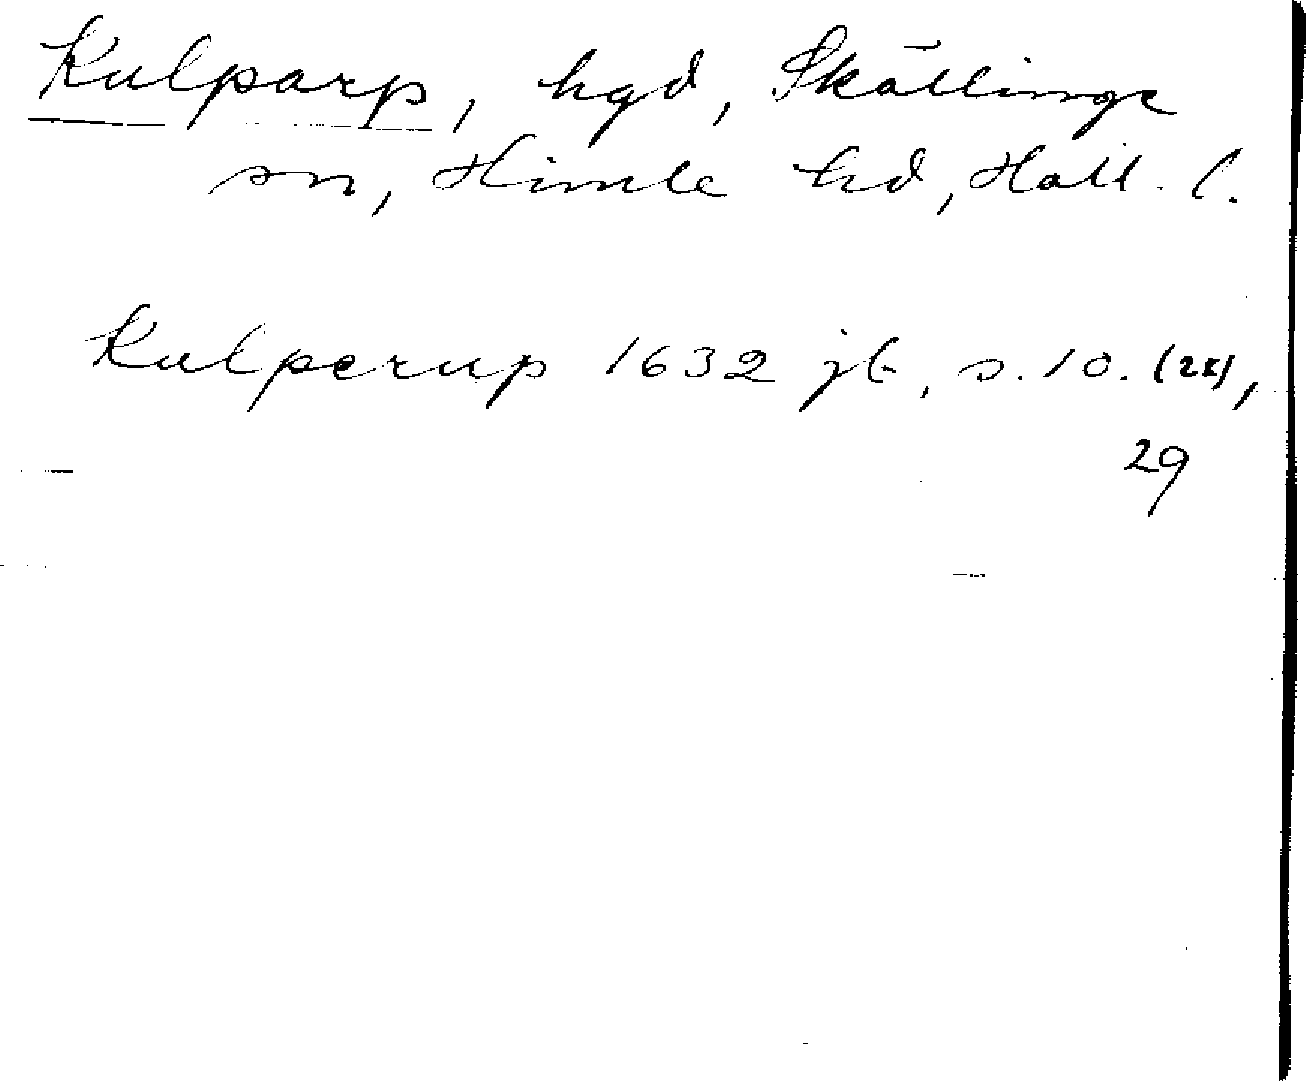 Kulparp, hgd, Skällinge
sn, Himle hd, Hall. l.
Kulperup 1632 jb, s. 10. (2x),
29